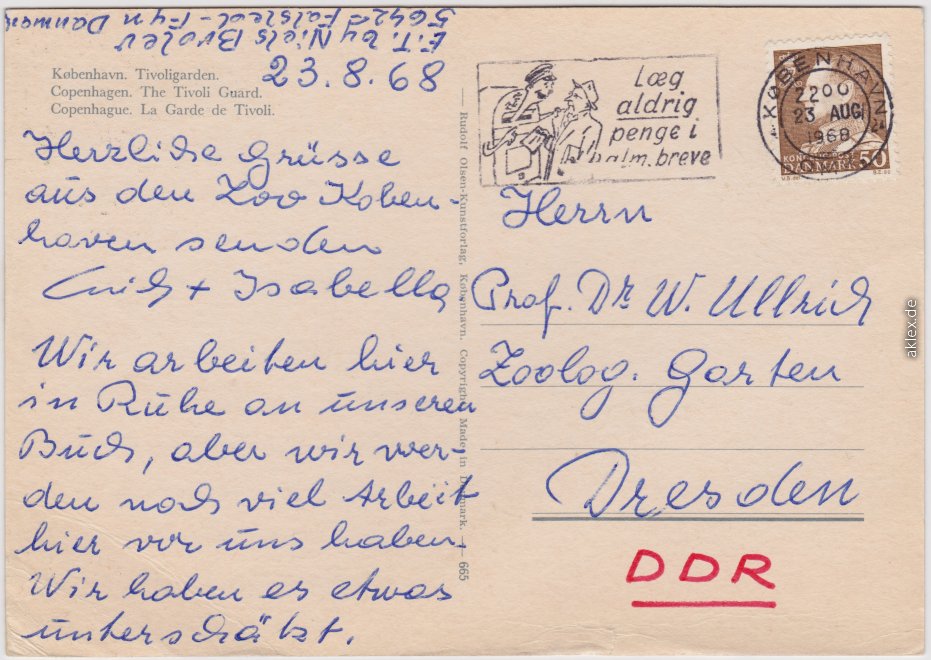 E.T. by Niels Broler
5642 Falsled - Fyn Danmark
23.8.68
København. Tivoligarden.
Copenhagen. The Tivoli Guard.
Copenhague. La Garde de Tivoli.
Herzliche Grüsse
aus den Zoo Koben-
haven senden
Erich + Isabella
Wir arbeiten hier
in Ruhe an unseren
Buch, aber wir wer-
den noch viel Arbeit
hier vor uns haben.
Wir haben es etwas
unterschätzt.
Rudolf Olsen-Kunstforlag, København. Copyright. Made in Denmark. — 665
Læg
aldrig
penge i
alm. breve
KØBENHAVN
2200
23 AUG
1968
DANMARK 50
Herrn
Prof. Dr. W. Ullrich
Zoolog. Garten
Dresden
DDR
aklex.de